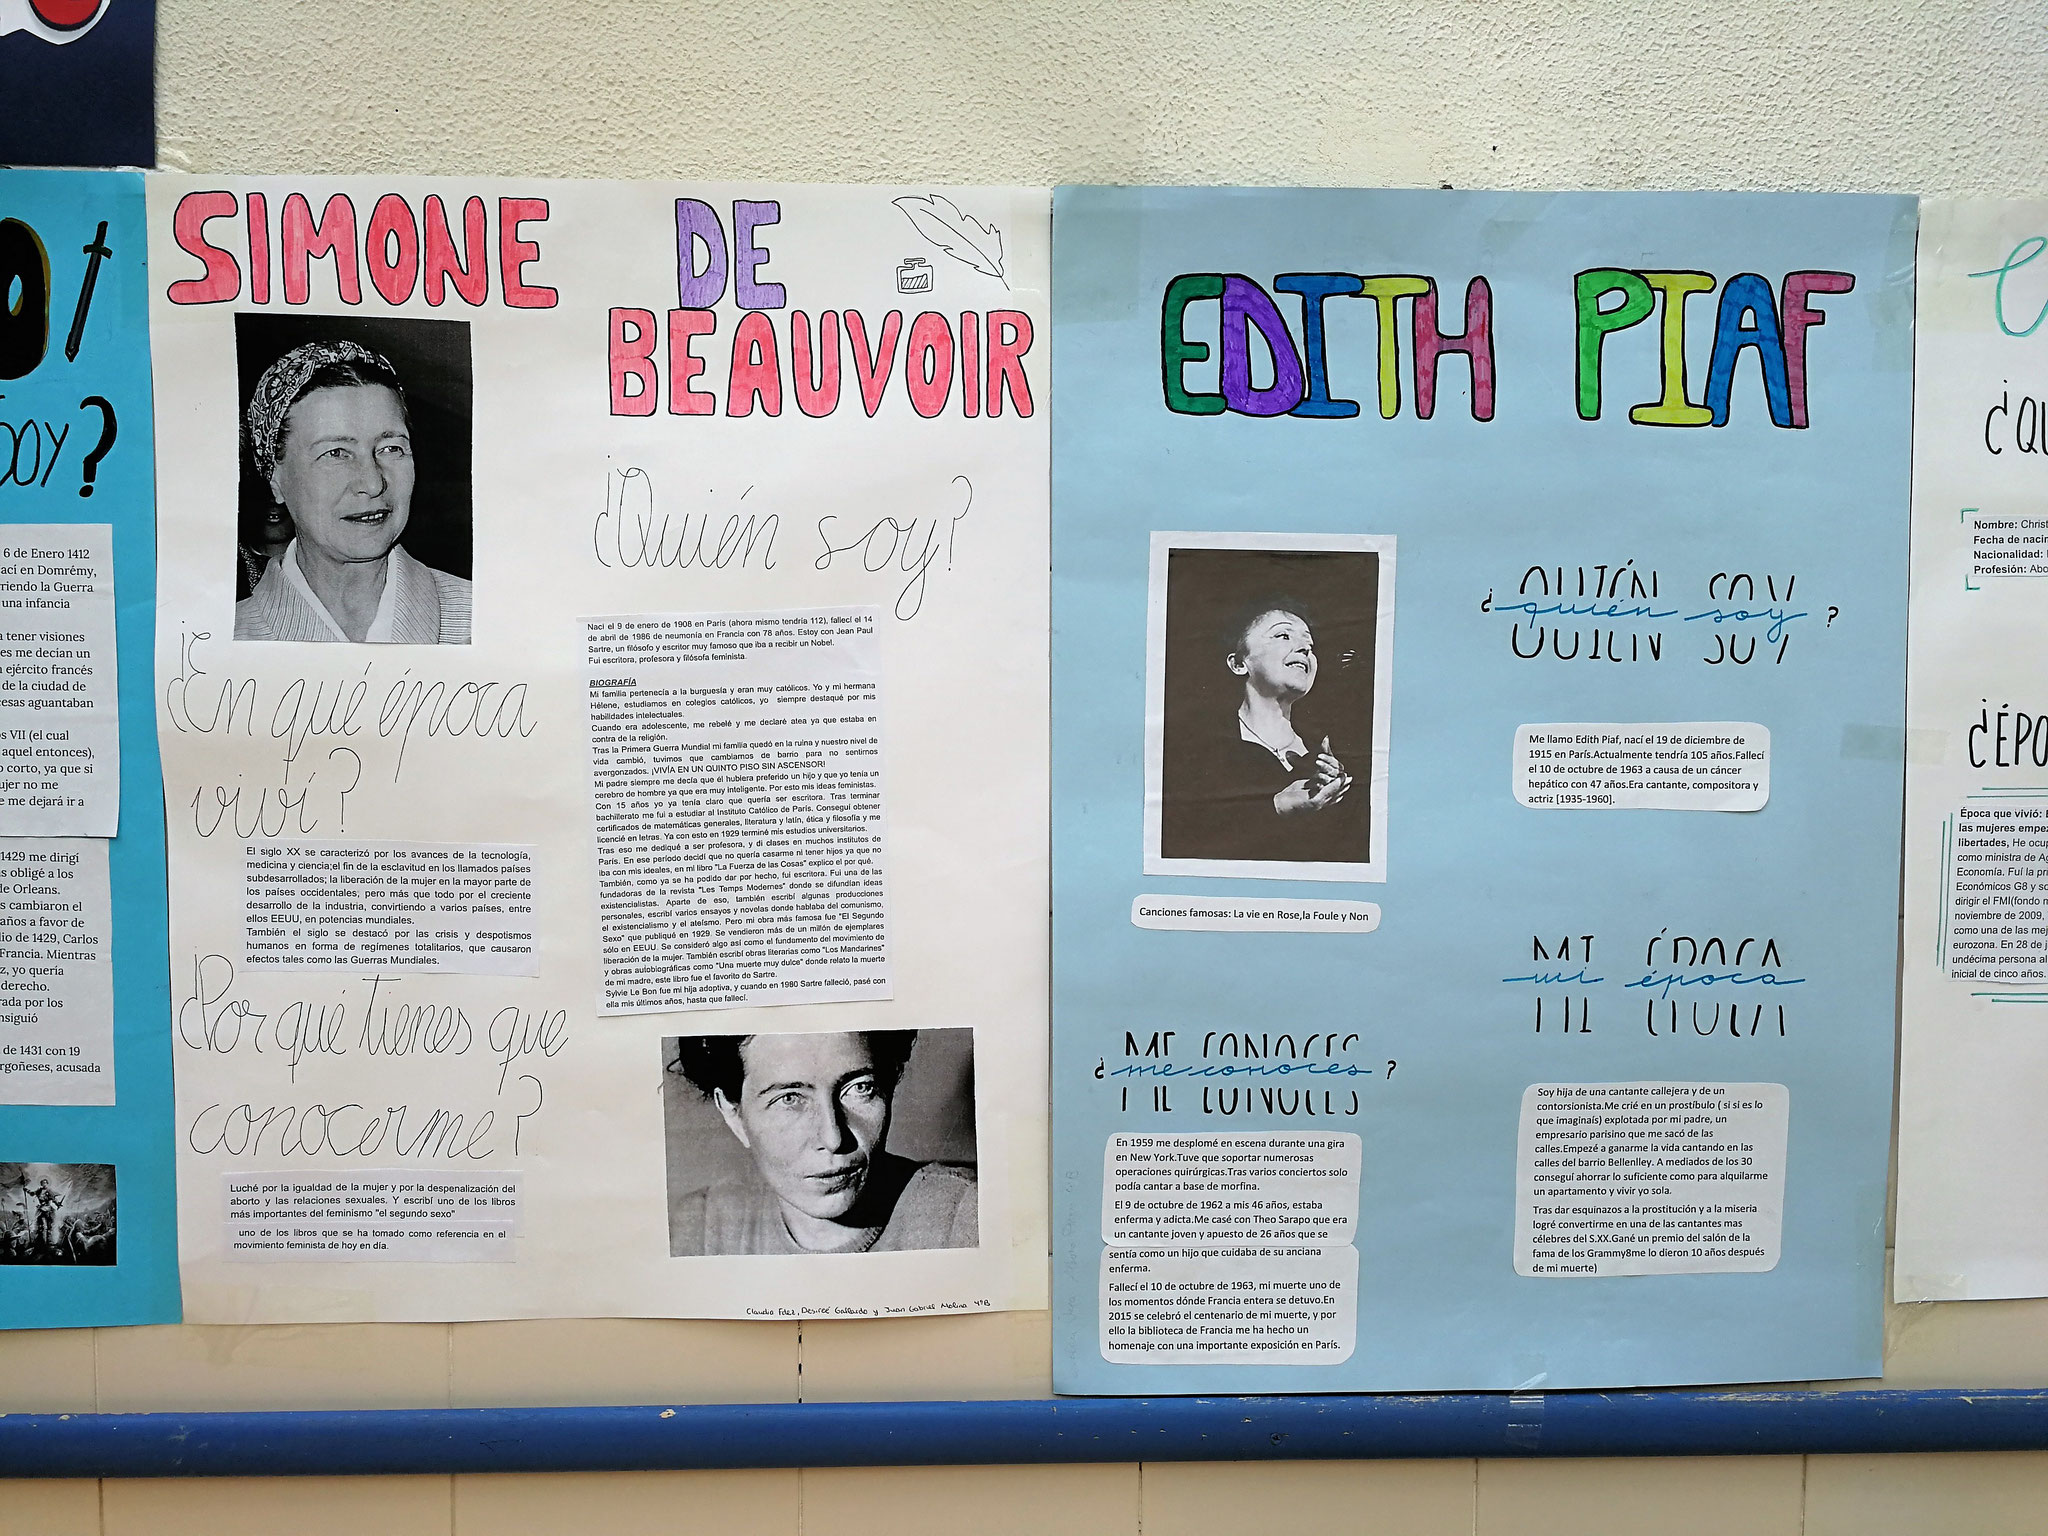 soy?
6 de Enero 1412
ací en Domrémy,
rriendo la Guerra
una infancia
a tener visiones
es me decían un
ejército francés
de la ciudad de
cesas aguantaban
os VII (el cual
aquel entonces),
o corto, ya que si
ujer no me
e me dejará ir a
1429 me dirigí
as obligé a los
de Orleans.
s cambiaron el
años a favor de
lio de 1429, Carlos
Francia. Mientras
z, yo quería
derecho.
rada por los
nsiguió
de 1431 con 19
rgoñeses, acusada
SIMONE DE
BEAUVOIR
¿Quién soy?
Nací el 9 de enero de 1908 en París (ahora mismo tendría 112), fallecí el 14
de abril de 1986 de neumonía en Francia con 78 años. Estoy con Jean Paul
Sartre, un filósofo y escritor muy famoso que iba a recibir un Nobel.
Fui escritora, profesora y filósofa feminista.
BIOGRAFÍA
Mi familia pertenecía a la burguesía y eran muy católicos. Yo y mi hermana
Hélene, estudiamos en colegios católicos, yo siempre destaqué por mis
habilidades intelectuales.
Cuando era adolescente, me rebelé y me declaré atea ya que estaba en
contra de la religión.
Tras la Primera Guerra Mundial mi familia quedó en la ruina y nuestro nivel de
vida cambió, tuvimos que cambiarnos de barrio para no sentirnos
avergonzados. ¡VIVÍA EN UN QUINTO PISO SIN ASCENSOR!
Mi padre siempre me decía que él hubiera preferido un hijo y que yo tenía un
cerebro de hombre ya que era muy inteligente. Por esto mis ideas feministas.
Con 15 años yo ya tenía claro que quería ser escritora. Tras terminar
bachillerato me fui a estudiar al Instituto Católico de París. Conseguí obtener
certificados de matemáticas generales, literatura y latín, ética y filosofía y me
licencié en letras. Ya con esto en 1929 terminé mis estudios universitarios.
Tras eso me dediqué a ser profesora, y di clases en muchos institutos de
París. En ese período decidí que no quería casarme ni tener hijos ya que no
iba con mis ideales, en mi libro "La Fuerza de las Cosas" explico el por qué.
También, como ya se ha podido dar por hecho, fui escritora. Fui una de las
fundadoras de la revista "Les Temps Modernes" donde se difundían ideas
existencialistas. Aparte de eso, también escribí algunas producciones
personales, escribí varios ensayos y novelas donde hablaba del comunismo,
el existencialismo y el ateísmo. Pero mi obra más famosa fue "El Segundo
Sexo" que publiqué en 1929. Se vendieron más de un millón de ejemplares
sólo en EEUU. Se consideró algo así como el fundamento del movimiento de
liberación de la mujer. También escribí obras literarias como "Los Mandarines"
y obras autobiográficas como "Una muerte muy dulce" donde relato la muerte
de mi madre, este libro fue el favorito de Sartre.
Sylvie Le Bon fue mi hija adoptiva, y cuando en 1980 Sartre falleció, pasé con
ella mis últimos años, hasta que fallecí.
¿En qué época
viví?
El siglo XX se caracterizó por los avances de la tecnología,
medicina y ciencia;el fin de la esclavitud en los llamados países
subdesarrollados; la liberación de la mujer en la mayor parte de
los países occidentales; pero más que todo por el creciente
desarrollo de la industria, convirtiendo a varios países, entre
ellos EEUU, en potencias mundiales.
También el siglo se destacó por las crisis y despotismos
humanos en forma de regímenes totalitarios, que causaron
efectos tales como las Guerras Mundiales.
¿Por qué tienes que
conocerme?
Luché por la igualdad de la mujer y por la despenalización del
aborto y las relaciones sexuales. Y escribí uno de los libros
más importantes del feminismo "el segundo sexo"
uno de los libros que se ha tomado como referencia en el
movimiento feminista de hoy en día.
Claudia Fdez, Desireé Gallardo y Juan Gabriel Molina 4ºB
EDITH PIAF
¿quién soy?
Me llamo Edith Piaf, nací el 19 de diciembre de
1915 en París.Actualmente tendría 105 años.Fallecí
el 10 de octubre de 1963 a causa de un cáncer
hepático con 47 años.Era cantante, compositora y
actriz [1935-1960].
Canciones famosas: La vie en Rose,la Foule y Non
mi época
Soy hija de una cantante callejera y de un
contorsionista.Me crié en un prostíbulo ( si si es lo
que imaginaís) explotada por mi padre, un
empresario parisino que me sacó de las
calles.Empezé a ganarme la vida cantando en las
calles del barrio Bellenlley. A mediados de los 30
conseguí ahorrar lo suficiente como para alquilarme
un apartamento y vivir yo sola.
Tras dar esquinazos a la prostitución y a la miseria
logré convertirme en una de las cantantes mas
célebres del S.XX.Gané un premio del salón de la
fama de los Grammy8me lo dieron 10 años después
de mi muerte)
¿me conoces?
En 1959 me desplomé en escena durante una gira
en New York.Tuve que soportar numerosas
operaciones quirúrgicas.Tras varios conciertos solo
podía cantar a base de morfina.
El 9 de octubre de 1962 a mis 46 años, estaba
enferma y adicta.Me casé con Theo Sarapo que era
un cantante joven y apuesto de 26 años que se
sentía como un hijo que cuidaba de su anciana
enferma.
Fallecí el 10 de octubre de 1963, mi muerte uno de
los momentos dónde Francia entera se detuvo.En
2015 se celebró el centenario de mi muerte, y por
ello la biblioteca de Francia me ha hecho un
homenaje con una importante exposición en París.
¿QU
Nombre: Christ
Fecha de nacir
Nacionalidad:
Profesión: Abo
¿ÉPO
Época que vivió:
las mujeres empez
libertades, He ocup
como ministra de Ag
Economía. Fuí la pri
Económicos G8 y so
dirigir el FMI(fondo m
noviembre de 2009,
como una de las mej
eurozona. En 28 de j
undécima persona al
inicial de cinco años.